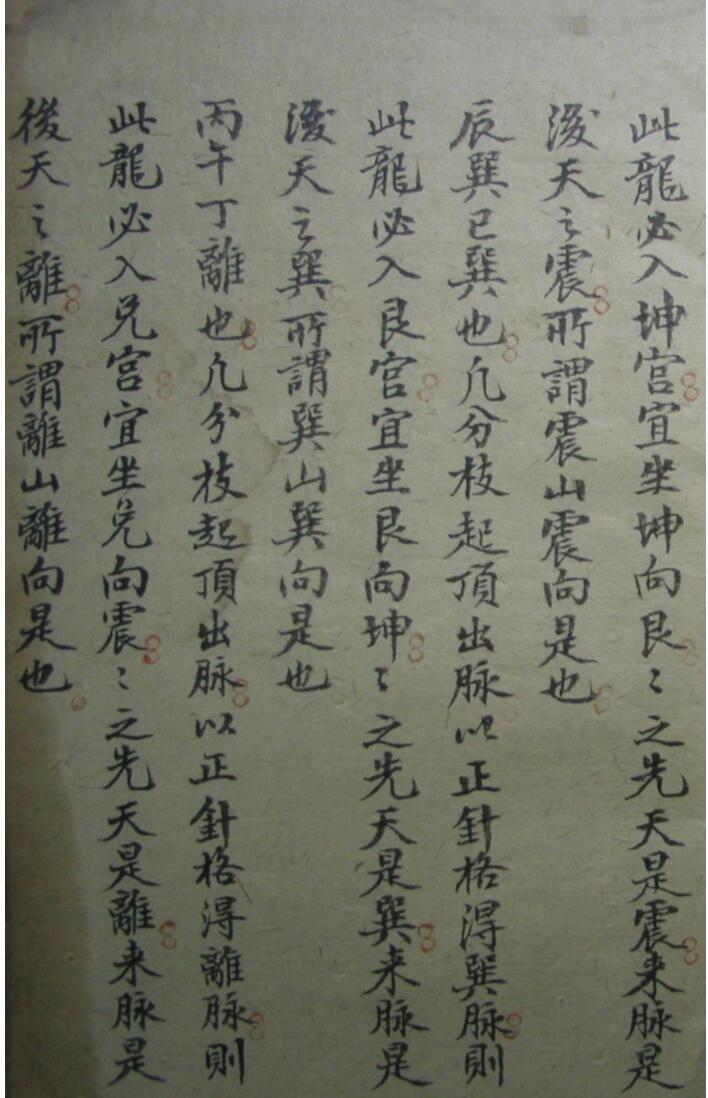 此龍必入坤宮宜坐坤向艮〻之先天是震来脉是
後天之震所謂震山震向是也
辰巽巳巽也凢分枝起頂出脉以正針格得巽脉則
此龍必入艮宮宜坐艮向坤〻之先天是巽来脉是
後天之巽所謂巽山巽向是也
丙午丁離也凢分枝起頂出脉以正針格得離脉則
此龍必入兌宮宜坐兌向震〻之先天是離来脉是
後天之離所謂離山離向是也